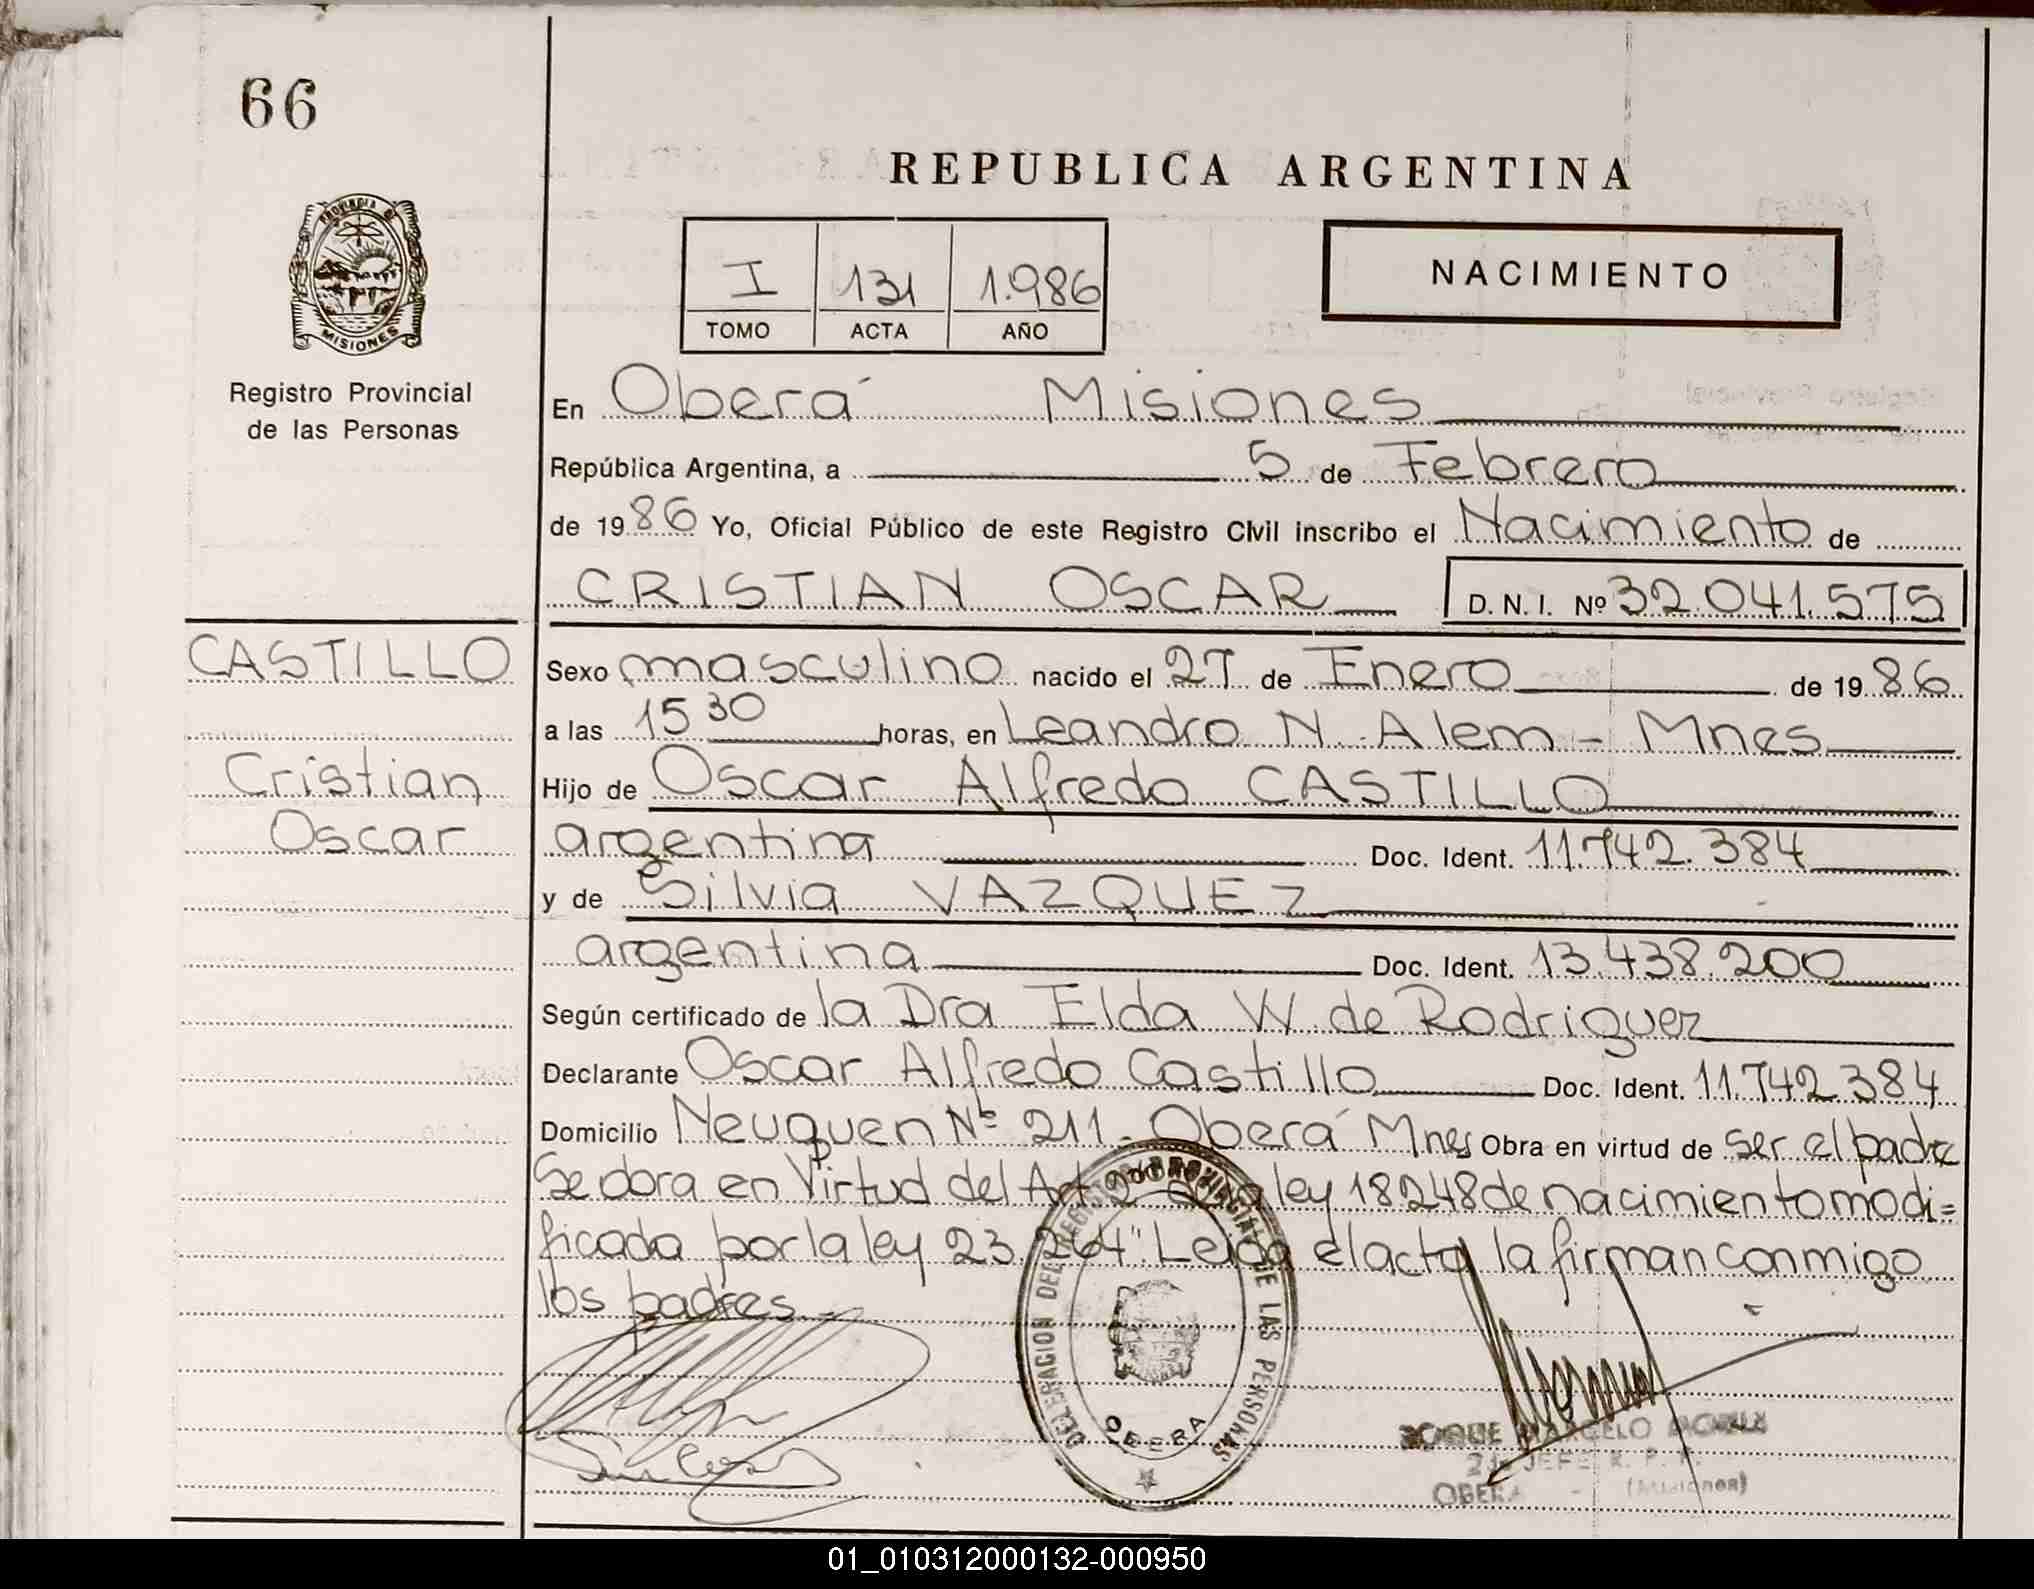 66
REPUBLICA ARGENTINA
PROVINCIA DE
MISIONES
Registro Provincial
de las Personas
I 131 1.986
TOMO ACTA AÑO
NACIMIENTO
En Oberá Misiones
República Argentina, a 5 de Febrero
de 1986 Yo, Oficial Público de este Registro Civil inscribo el Nacimiento de
CRISTIAN OSCAR D. N. I. Nº 32.041.575
CASTILLO
Cristian
Oscar
Sexo masculino nacido el 27 de Enero de 1986
a las 15 30 horas, en Leandro N. Alem - Mnes
Hijo de Oscar Alfredo CASTILLO
argentina Doc. Ident. 11.742.384
y de Silvia VAZQUEZ
argentina Doc. Ident. 13.438.200
Según certificado de la Dra Elda W. de Rodriguez
Declarante Oscar Alfredo Castillo Doc. Ident. 11.742.384
Domicilio Neuquen Nº 211. Oberá Mnes Obra en virtud de ser el padre
Se obra en Virtud del Art ley 18248 de nacimiento modi=
ficada por la ley 23.264". Leida el acta la firman conmigo
los padres.
DELEGACION DEL REGISTRO PROVINCIAL DE LAS PERSONAS
OBERA
ROQUE MARCELO
JEFE R. P. P.
OBERA - (Misiones)
01_010312000132-000950